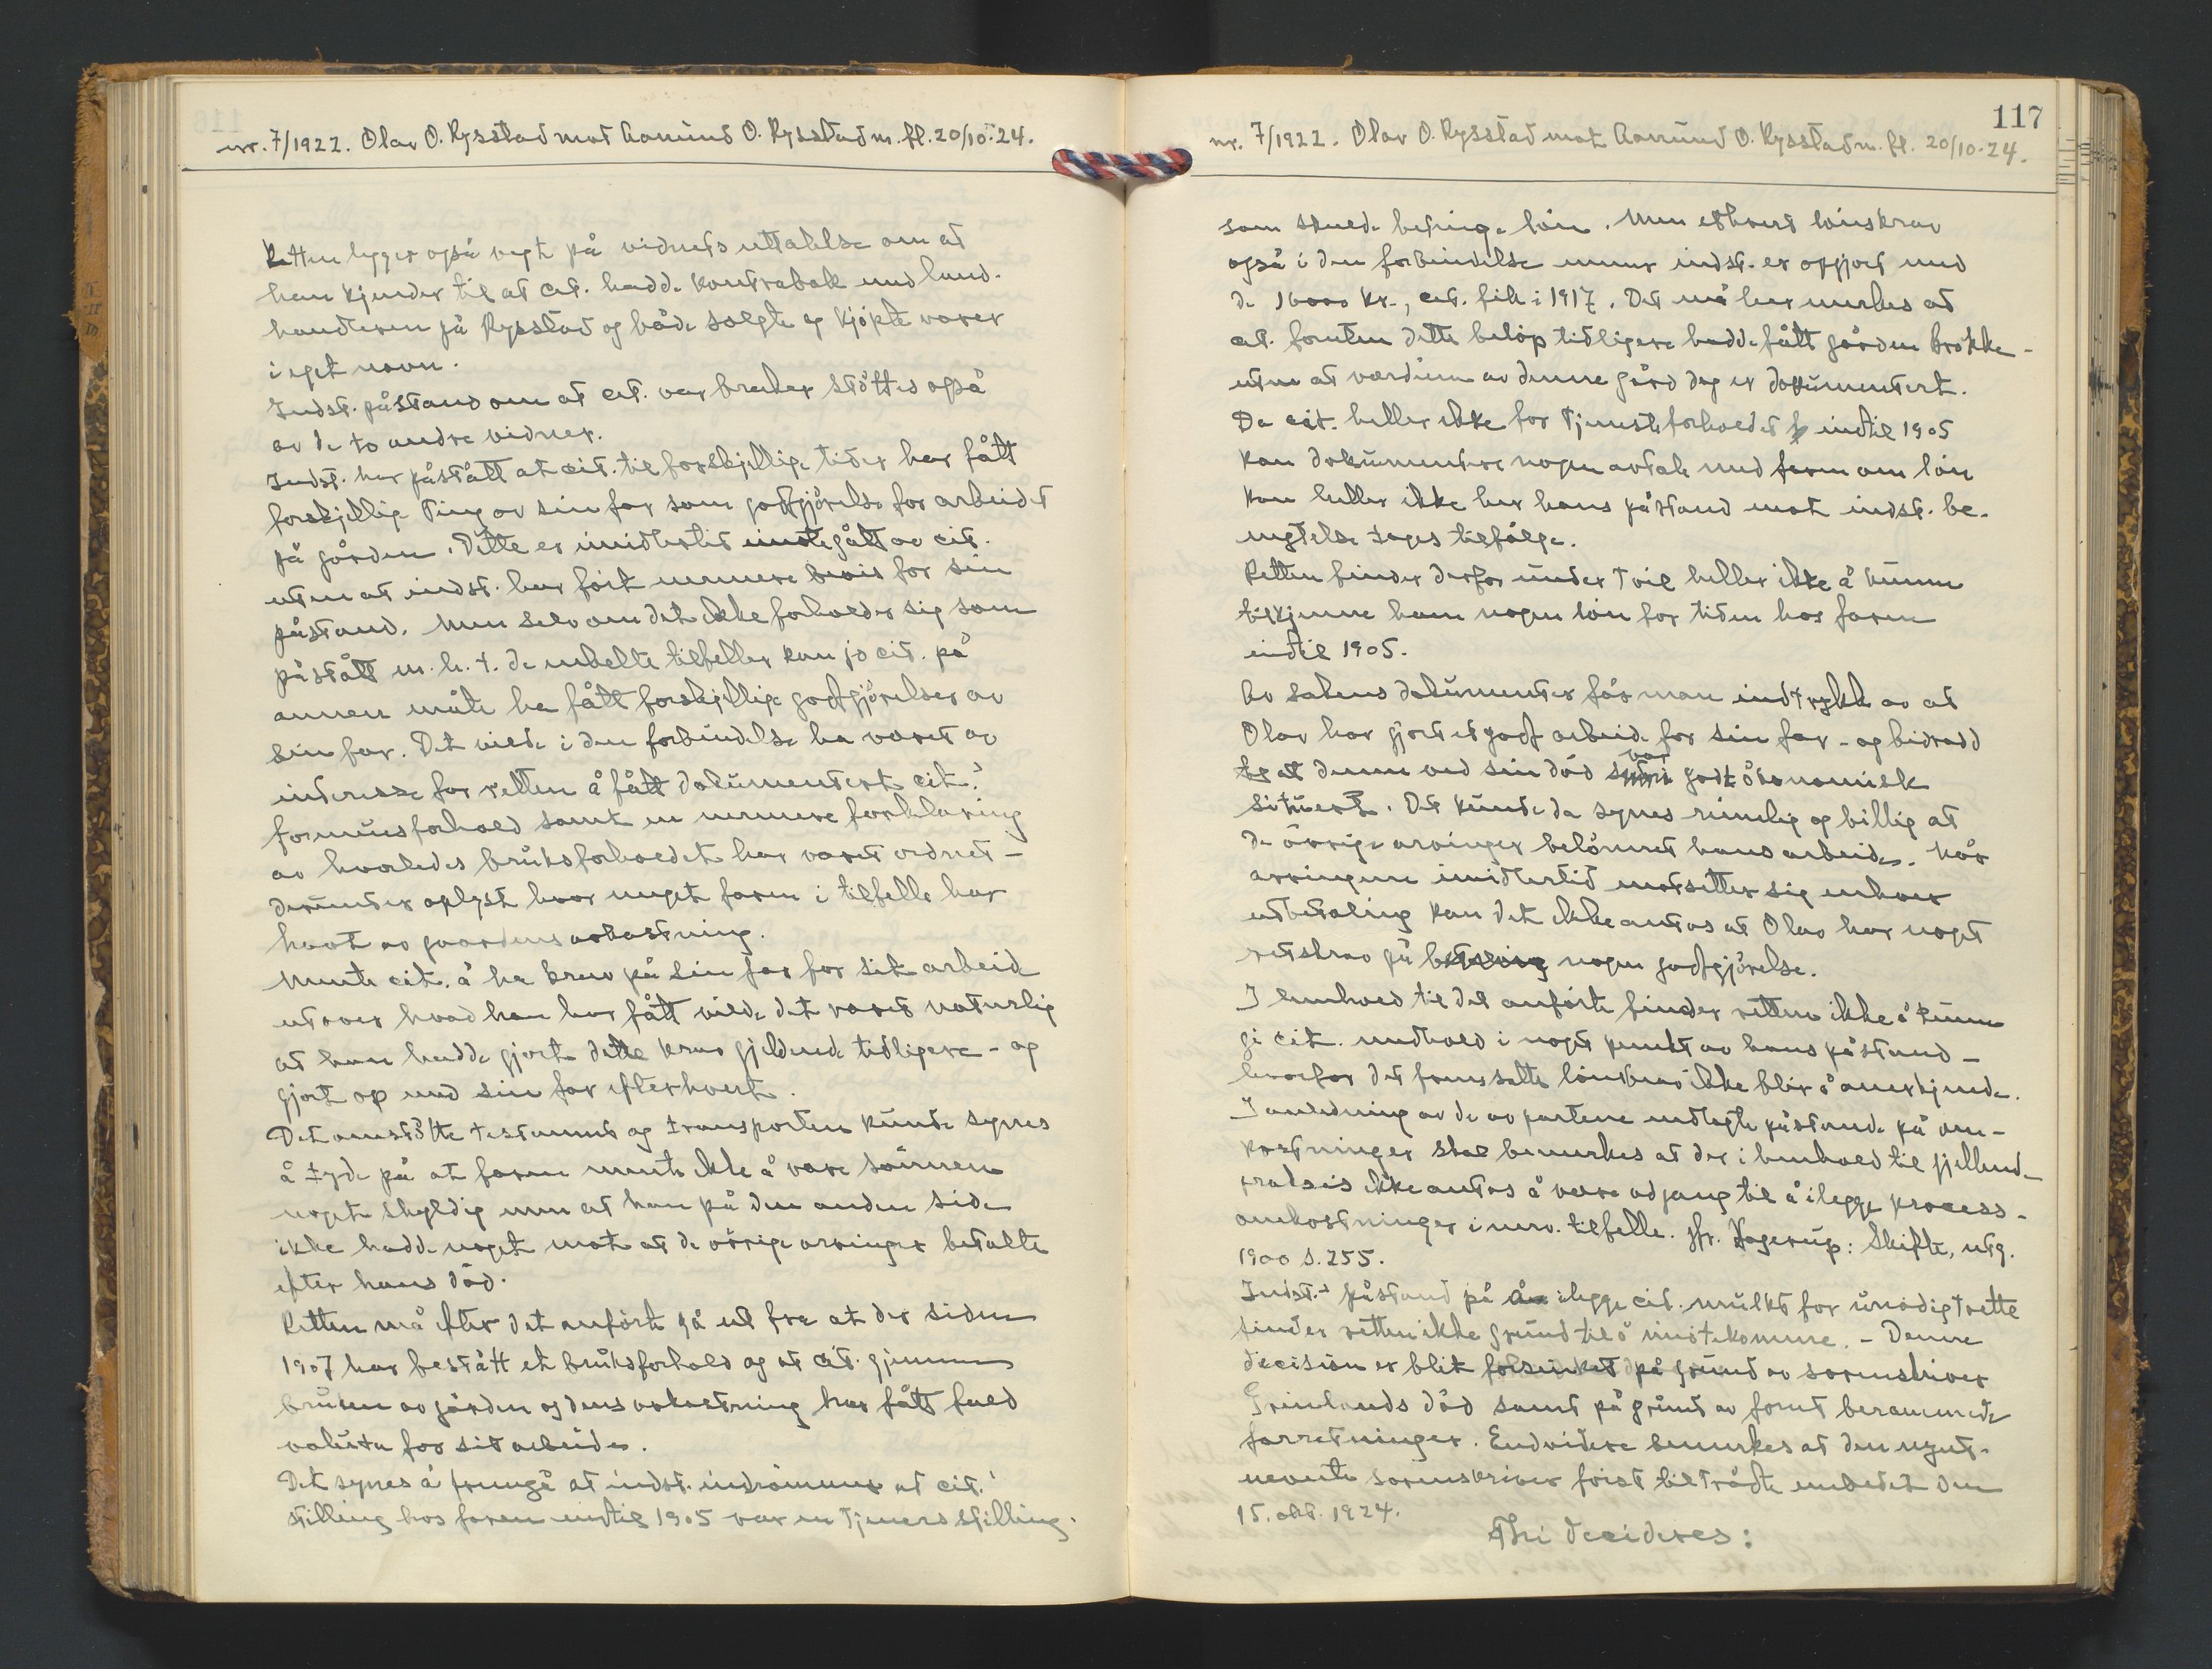 nr. 7/1922. Olav O. Rysstad mot Aamund O. Rysstad m. fl. 20/10-24.
Retten legger også vegt på vidnets uttalelse om at
han kjender til at cit. hadde kontrabok med land-
handleren på Rysstad og både solgte og kjøpte varer
i eget navn.
Indst. påstand om at cit. var bruker støttes også
av de to andre vidner.
Indst. har påstått at cit. til forskjellige tider har fått
forskjellige ting av sin far som godtgjørelse for arbeidet
på gården. Dette er imidlertid imøtegått av cit.
uten at indst. har ført nærmere bevis for sin
påstand. Men selv om det ikke forholder sig som
påstått m. h. t. de enkelte tilfeller kan jo cit. på
annen måte ha fått forskjellige godtgjørelser av
sin far. Det vilde i den forbindelse ha været av
interesse for retten å fått dokumentert cit.'
formuesforhold samt en nærmere forklaring
av hvorledes bruksforholdet har været ordnet -
derunder oplyst hvor meget faren i tilfelle har
hævt av gaardens avkastning.
Mente cit. å ha krav på sin far for sit arbeid
utover hvad han har fått vilde det været naturlig
at han hadde gjort dette krav gjeldende tidligere - og
gjort op med sin far efterhvert.
Det omstøtte testament og transporten kunde synes
å tyde på at faren mente ikke å være sønnen
noget skyldig men at han på den anden side
ikke hadde noget mot at de øvrige arvinger betalte
efter hans død.
Retten må efter det anførte gå ut fra at der siden
1907 har bestått et bruksforhold og at cit. gjennem
bruken av gården og dens avkastning har fått fuld
valuta for sit arbeide.
Det synes å fremgå at indst. indrømmer at cit.'
stilling hos faren indtil 1905 var en tjenerstilling.
117
nr. 7/1922. Olav O. Rysstad mot Aamund O. Rysstad m. fl. 20/10-24.
som skulde betinge løn. Men ethvert lønskrav
også i den forbindelse mener indst. er opgjort med
de 16000 kr., cit. fik i 1917. Det må her merkes at
cit. foruten dette beløp tidligere hadde fått gården Brokke -
uten at værdien av denne gård dog er dokumentert.
Da cit. heller ikke for tjenesteforholdet indtil 1905
kan dokumentere nogen avtale med faren om løn
kan heller ikke her hans påstand mot indst. be-
negtelse tages tilfølge.
Retten finder derfor under tvil heller ikke å kunne
tilkjenne ham nogen løn for tiden hos faren
indtil 1905.
Av sakens dokumenter får man indtrykk av at
Olav har gjort et godt arbeide for sin far - og bidradd
til at denne ved sin død var godt økonomisk
situert. Det kunde da synes rimelig og billig at
de øvrige arvinger belønnet hans arbeide. Når
arvingene imidlertid motsetter sig enhver
utbetaling kan det ikke antas at Olav har noget
retskrav på nogen godtgjørelse.
I henhold til det anførte finder retten ikke å kunne
gi cit. medhold i noget punkt av hans påstand -
hvorfor det fremsatte lønskrav ikke blir å anerkjende.
I anledning av de av partene nedlagte påstande på om-
kostninger skal bemerkes at der i henhold til gjellend-
praksis ikke antas å være adgang til å ilegge process-
omkostninger i nærv. tilfelle. Jfr. Hagerup: Skifte, utg.
1900 s. 255.
Indst.s påstand på å ilegge cit. mulkt for unødig trette
finder retten ikke grund til å imøtekomme. - Denne
decision er blit forsinket på grund av sorenskriver
Grimlunds død samt på grund av forut berammede
forretninger. Endvidere bemerkes at den nyut-
nevnte sorenskriver først tiltrådte embedet den
15. okt. 1924.
Thi decideres: